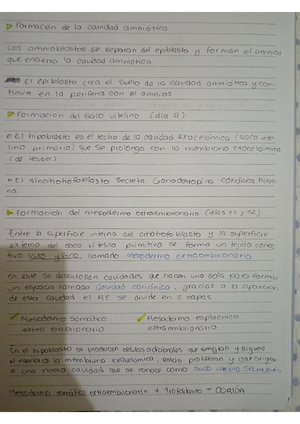 Formación de la cavidad amniótica
Los amnioblastos se separan del epiblasto y forman el amnios
que encierra la cavidad amniótica
El epiblasto crea el suelo de la cavidad amniótica y con-
tinua en la periferia con el amnios.
Formación del saco vitelino (día 9)
El hipoblasto es el techo de la cavidad exocelómica (saco vite-
lino primario) que se prolonga con la membrana exocelómica
(de Heuser)
El sincitiotrofoblasto secreta Gonadotropina coriónica huma
na.
Formación del mesodermo extraembrionario (días 11 y 12)
Entre la superficie interna del citotrofoblasto y la superficie
externa del saco vitelino primitivo se forma un tejido conec
tivo laxo y fino, llamado mesodermo extraembrionario.
en este se desarrollan cavidades que hacen una sola para formar
un espacio llamado cavidad coriónica, gracias a la aparición
de esta cavidad el MEE se divide en 2 capas
Mesodermo somático
extraembrionario
Mesodermo esplácnico
extraembrionario
En el hipoblasto se producen células adicionales que migran y siguen
el interior de la membrana exocelómica, estas proliferan y dan origen
a una nueva cavidad que se conoce como saco vitelino secundario
Mesodermo somático extraembrionario + trofoblasto = CORION